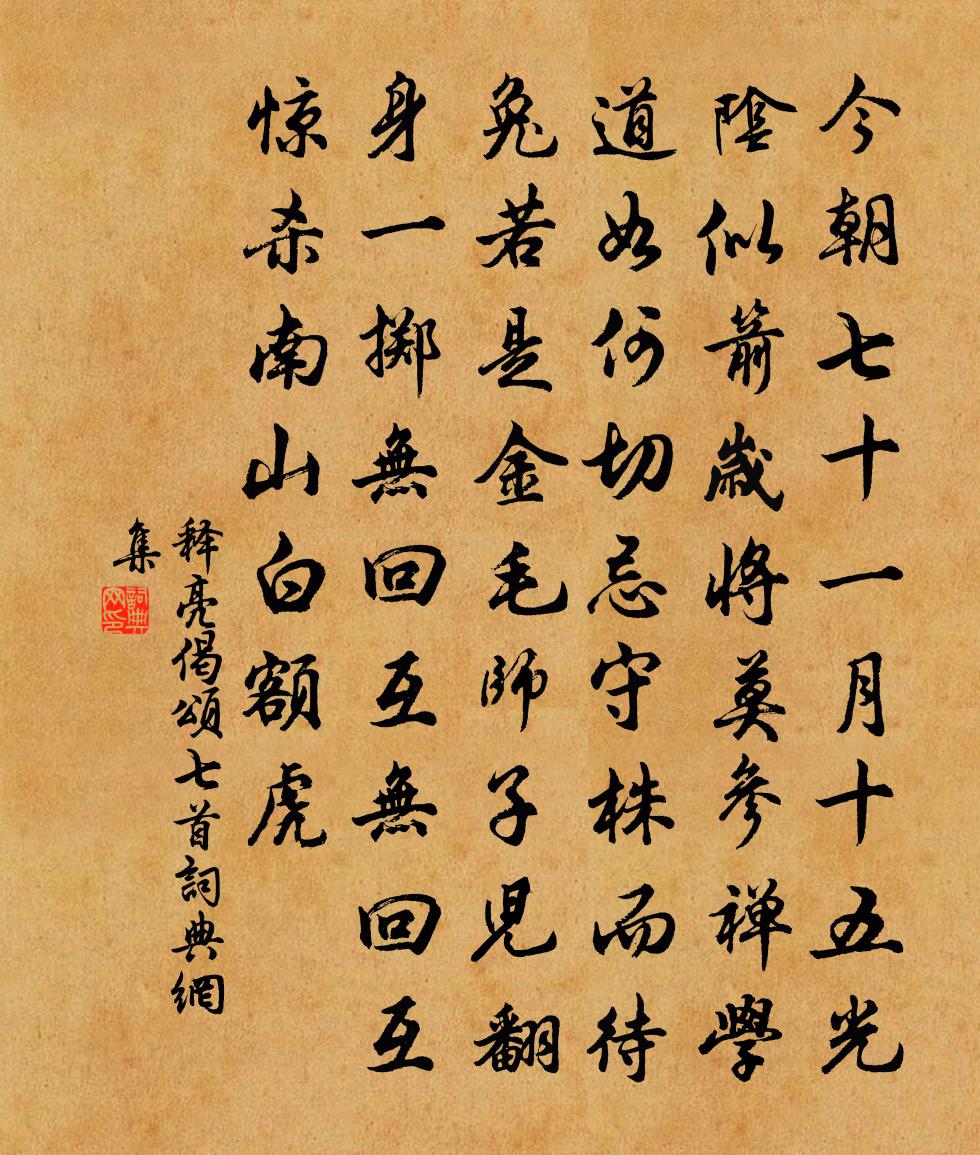 今朝七十一月十五光
陰似箭歲將莫參禅學
道如何切忌守株而待
兔若是金毛師子児翻
身一擲無回互無回互
惊杀南山白额虎
释亮偈頌七首詞典網
集
詞典
网印